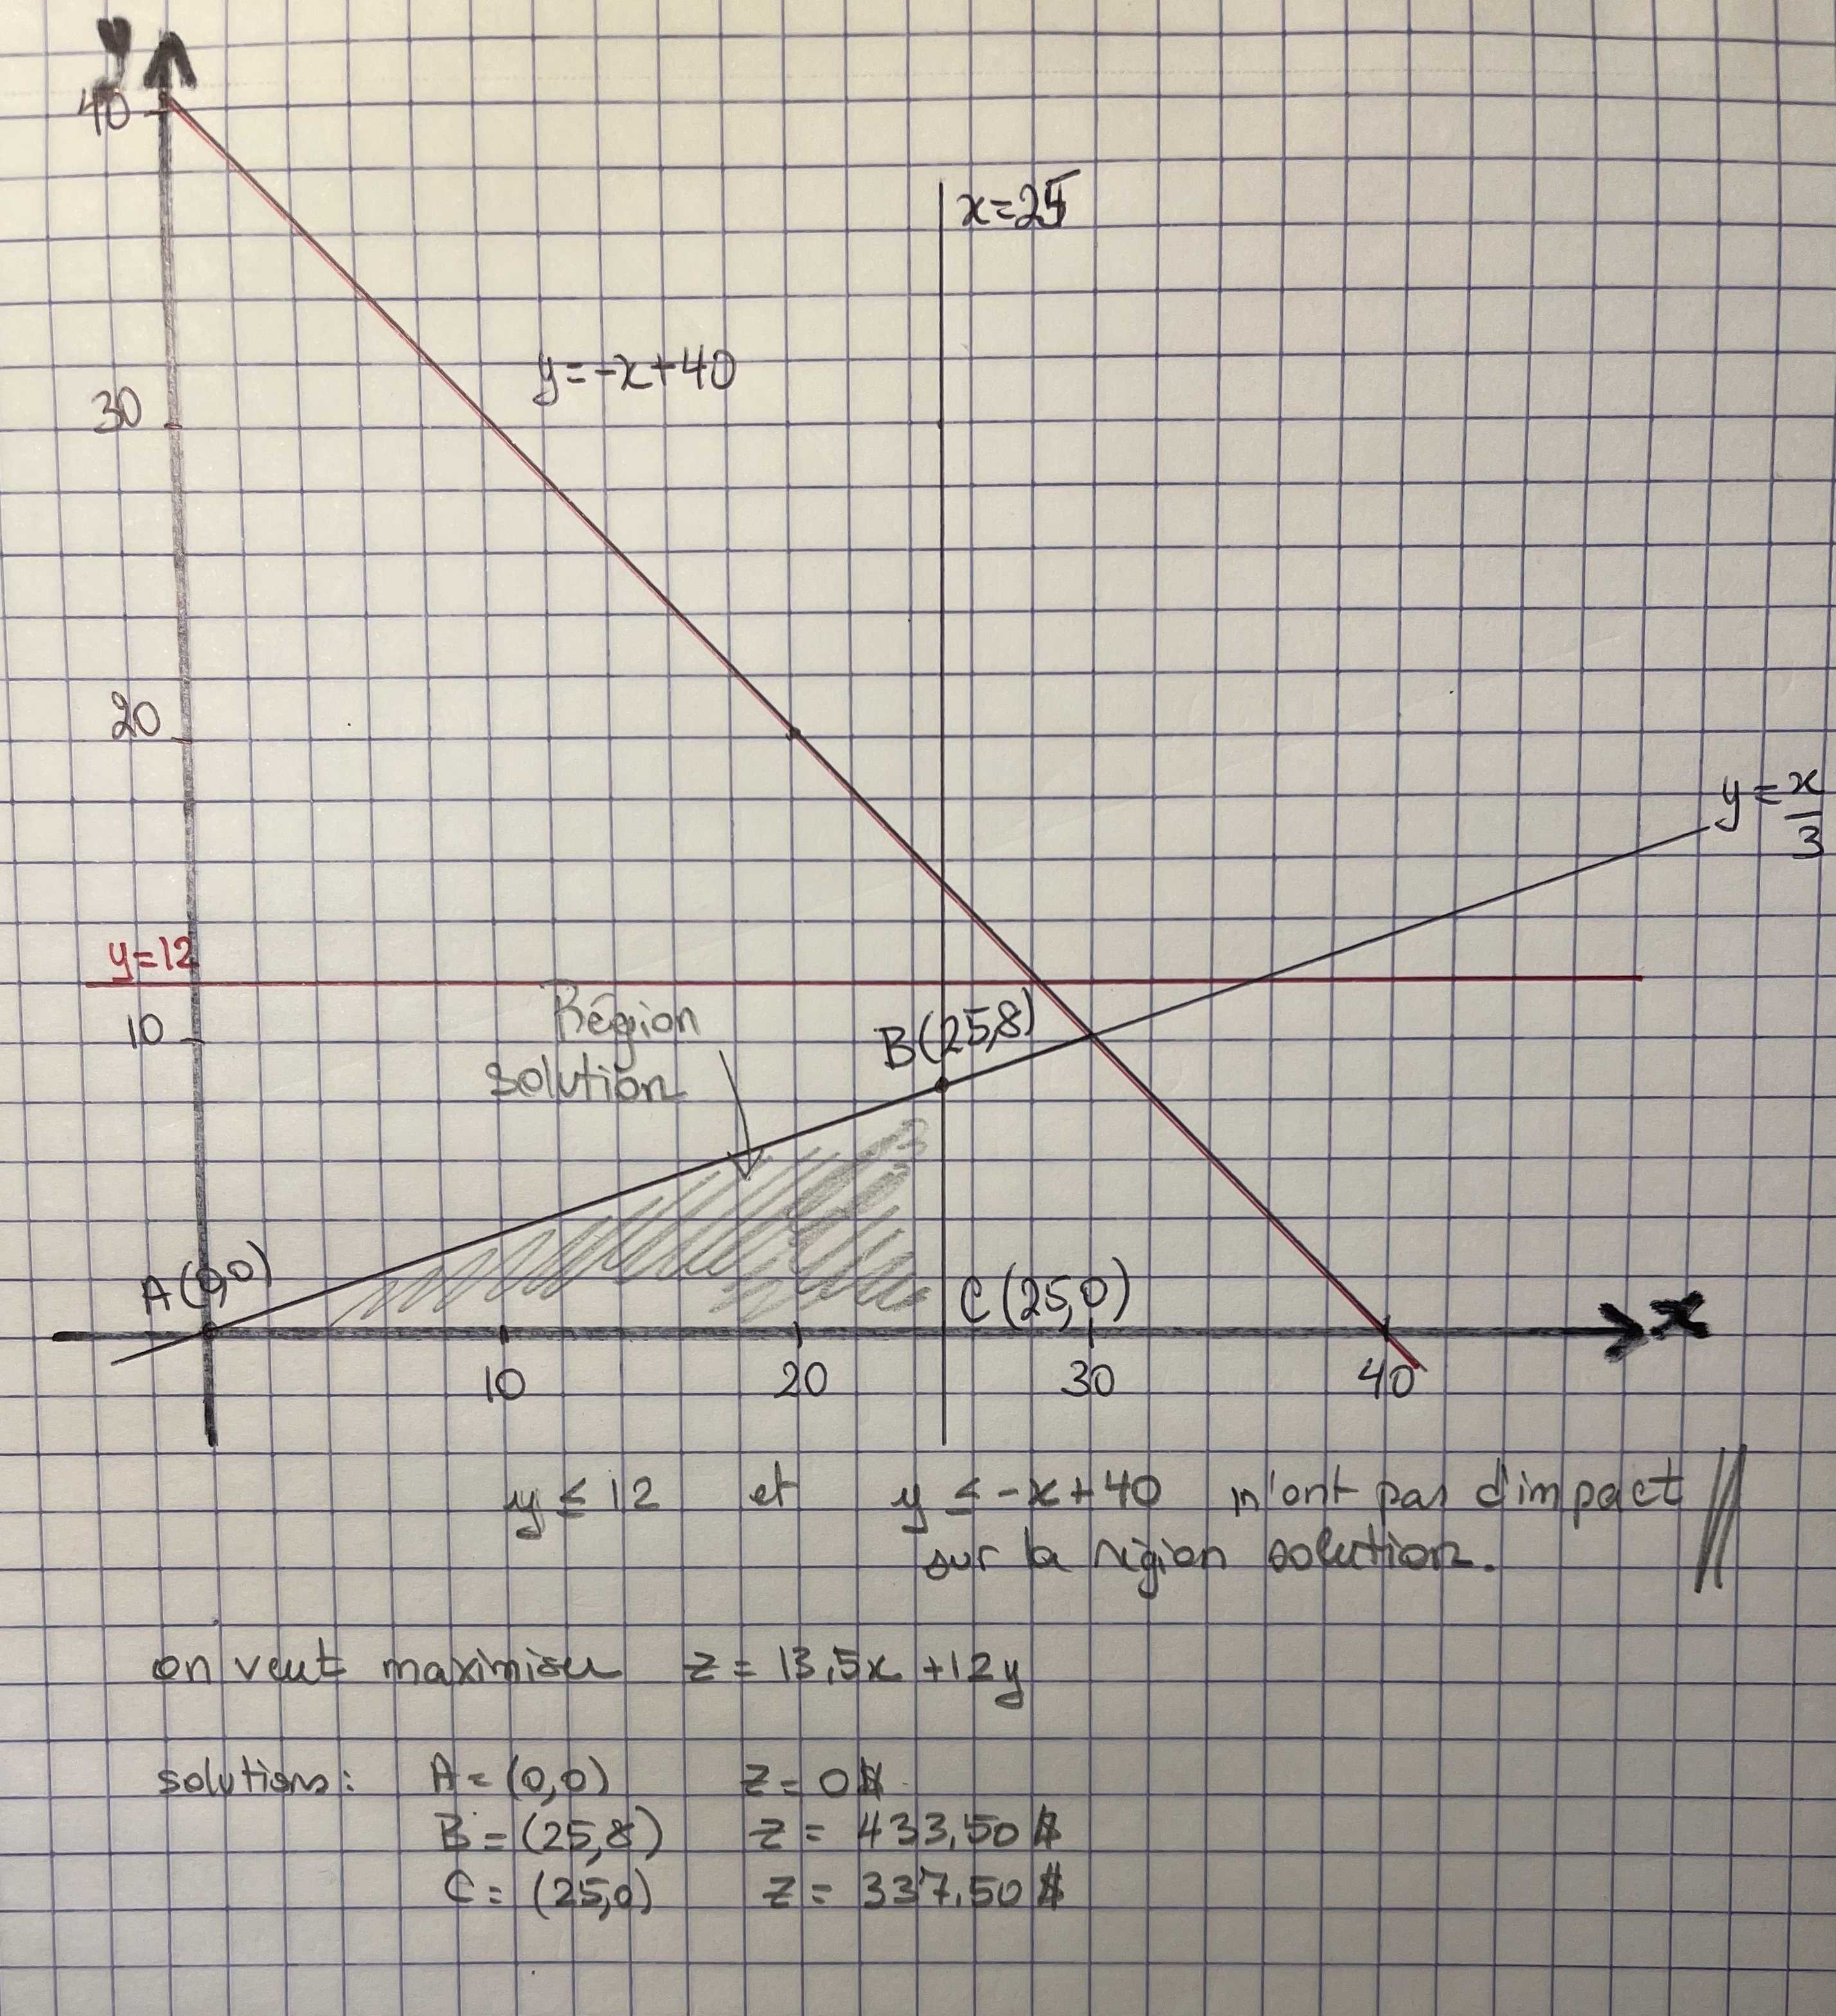 y
40
x=25
y=-x+40
30
20
y=x/3
y=12
Région
10
B(25,8)
solution
A(0,0)
C(25,0)
x
10 20 30 40
y ≤ 12 et y ≤ -x+40 n'ont pas d'impact
sur la région solution.
on veut maximiser z = 13,5x +12y
solutions: A = (0,0) z = 0$
B = (25,8) z = 433,50$
C = (25,0) z = 337,50$